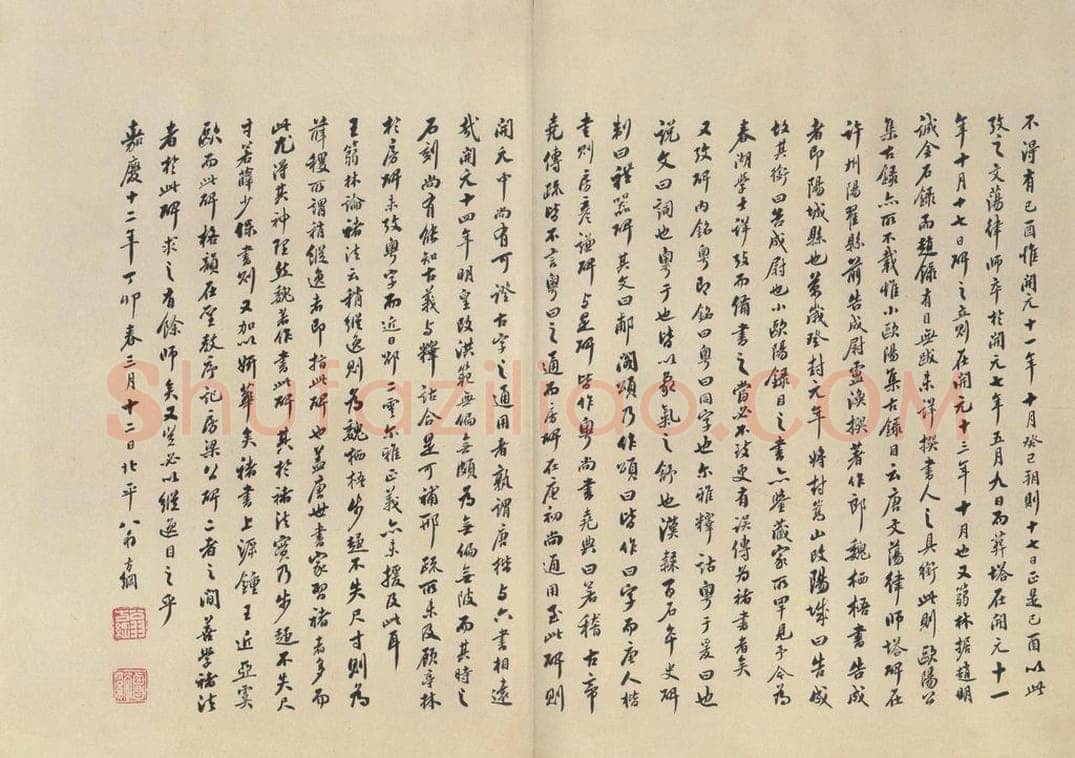 不得有己酉惟開元十一年十月癸巳朔則十七日正是己酉以此
攷之文蕩律師卒於開元七年五月九日而葬塔在開元十一
年十月十七日碑之立則在開元十三年十月也又翁林據趙明
誠金石錄而趙錄有目無跋未詳撰書人之具銜此則歐陽公
集古錄亦所不載惟小歐陽集古錄目云唐文蕩律師塔碑在
許州陽翟縣前告成尉靈渙撰著作郎魏栖梧書告成
者即陽城縣也萬歲登封元年將封嵩山改陽城曰告成
故其銜曰告成尉也小歐陽錄目之書亦鑒藏家所罕見予今為
春湖學士詳攷而備書之當必不致更有誤傳為褚書者矣
又攷碑內銘粵即銘曰粵曰同字也爾雅釋詁粵于爰曰也
說文曰詞也粵于也皆以象氣之舒也漢隸百石卒史碑
制曰禮器碑其文曰郙閣頌乃作頌曰皆作曰字而唐人楷
書則房彥謙碑与是碑皆作粵尚書堯典曰若稽古帝
堯傳疏皆不言粵曰之通而房碑在唐初尚通用至此碑則
開元中尚有可證古字之通用者孰謂唐楷与六書相遠
哉開元十四年明皇改洪範無偏無頗為無偏無陂而其時之
石刻尚有能知古義与釋詁合是可補邢疏所未及顧亭林
於房碑未攷粵字而近日邵二雲爾雅正義亦未援及此耳
王翁林論褚法云稍縱逸則為魏栖梧步趨不失尺寸則為
薛稷所謂稍縱逸者即指此碑也蓋唐世書家習褚者多而
此尤得其神理然魏著作書此碑其於褚法實乃步趨不失尺
寸若薛少保書則又加以妍華矣褚書上源鍾王近亞虞
歐而此碑格韻在聖教序記房梁公碑二者之間善學褚法
者於此碑求之有餘師矣又豈必以縱逸目之乎
嘉慶十二年丁卯春三月十二日北平翁方綱
Shufaziliao.COM